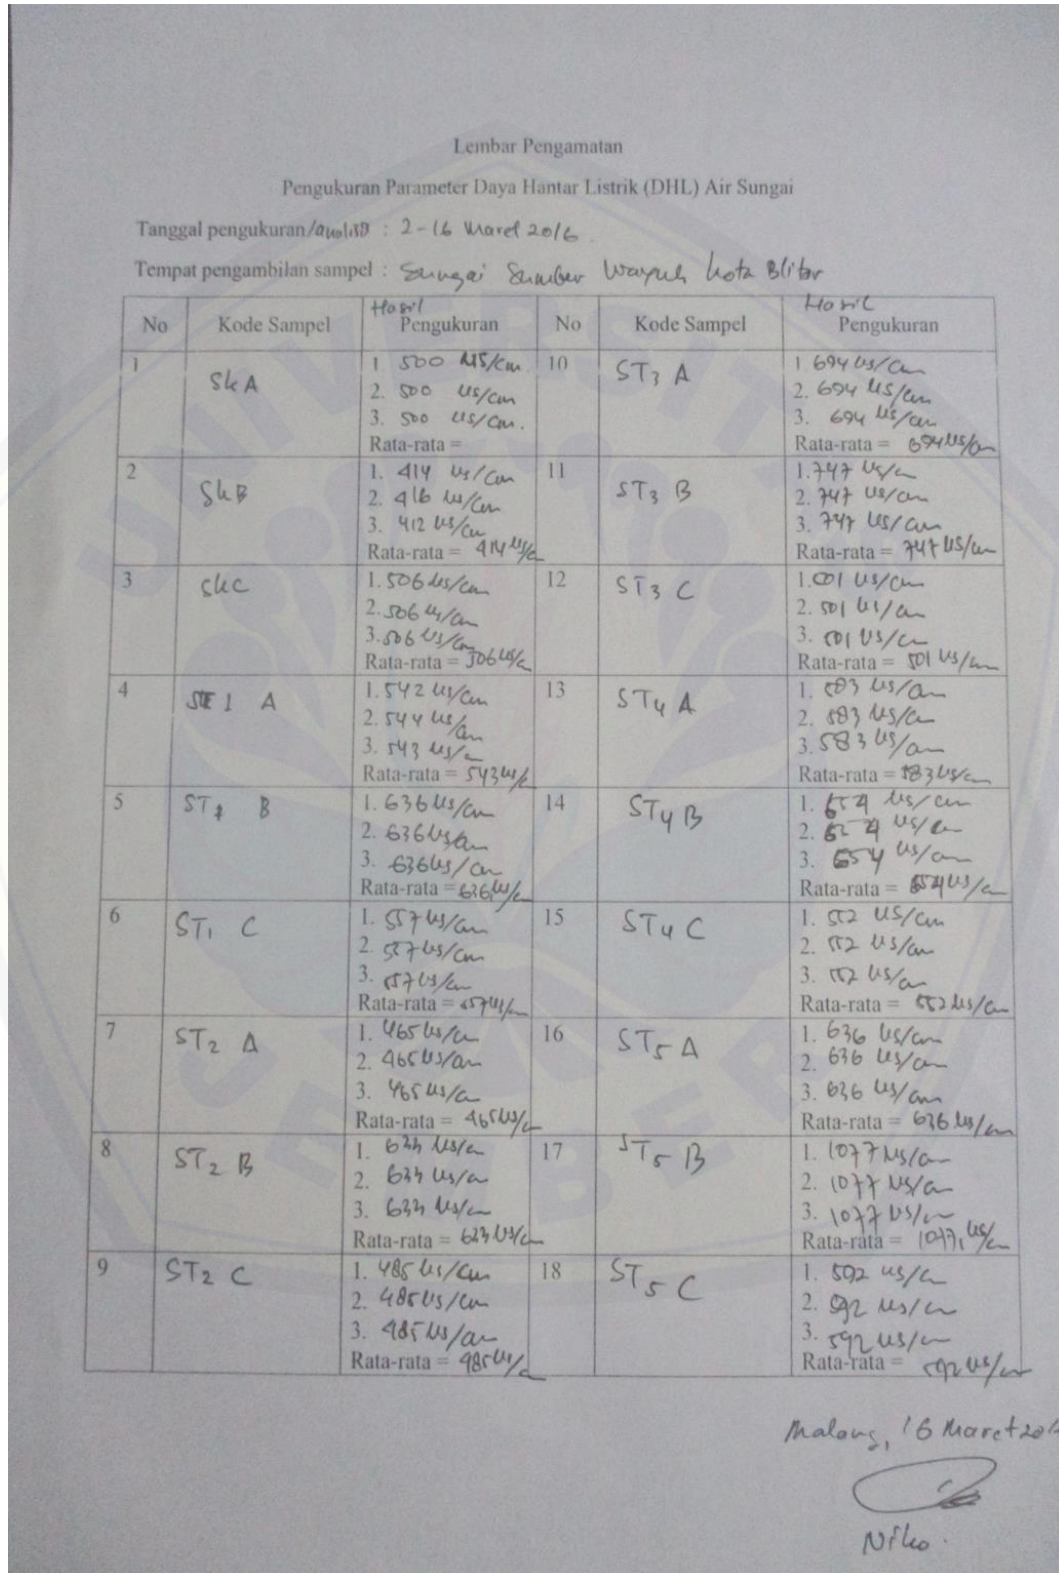 Lembar Pengamatan
Pengukuran Parameter Daya Hantar Listrik (DHL) Air Sungai
Tanggal pengukuran/analisis : 2-16 Maret 2016.
Tempat pengambilan sampel : Sungai Sumber Wayuh Kota Blitar
No Kode Sampel Hasil Pengukuran No Kode Sampel Hasil Pengukuran
1 SkA
1 500 µS/cm
2. 500 µS/cm
3. 500 µS/cm.
Rata-rata =
10 ST3 A
1 694 µS/cm
2. 694 µS/cm
3. 694 µS/cm
Rata-rata = 694 µS/cm
2 SkB
1. 414 µS/cm
2. 416 µS/cm
3. 412 µS/cm
Rata-rata = 414 µS/cm
11 ST3 B
1. 747 µS/cm
2. 747 µS/cm
3. 747 µS/cm
Rata-rata = 747 µS/cm
3 SkC
1. 506 µS/cm
2. 506 µS/cm
3. 506 µS/cm
Rata-rata = 506 µS/cm
12 ST3 C
1. 501 µS/cm
2. 501 µS/cm
3. 501 µS/cm
Rata-rata = 501 µS/cm
4 ST 1 A
1. 542 µS/cm
2. 544 µS/cm
3. 543 µS/cm
Rata-rata = 543 µS/cm
13 ST4 A
1. 583 µS/cm
2. 583 µS/cm
3. 583 µS/cm
Rata-rata = 583 µS/cm
5 ST1 B
1. 636 µS/cm
2. 636 µS/cm
3. 636 µS/cm
Rata-rata = 636 µS/cm
14 ST4 B
1. 654 µS/cm
2. 654 µS/cm
3. 654 µS/cm
Rata-rata = 654 µS/cm
6 ST1 C
1. 557 µS/cm
2. 557 µS/cm
3. 557 µS/cm
Rata-rata = 557 µS/cm
15 ST4 C
1. 552 µS/cm
2. 552 µS/cm
3. 552 µS/cm
Rata-rata = 552 µS/cm
7 ST2 A
1. 465 µS/cm
2. 465 µS/cm
3. 465 µS/cm
Rata-rata = 465 µS/cm
16 ST5 A
1. 636 µS/cm
2. 636 µS/cm
3. 636 µS/cm
Rata-rata = 636 µS/cm
8 ST2 B
1. 633 µS/cm
2. 633 µS/cm
3. 633 µS/cm
Rata-rata = 633 µS/cm
17 ST5 B
1. 1077 µS/cm
2. 1077 µS/cm
3. 1077 µS/cm
Rata-rata = 1077 µS/cm
9 ST2 C
1. 485 µS/cm
2. 485 µS/cm
3. 485 µS/cm
Rata-rata = 485 µS/cm
18 ST5 C
1. 592 µS/cm
2. 592 µS/cm
3. 592 µS/cm
Rata-rata = 592 µS/cm
Malang, 16 Maret 201
Niko.
UNIVERSITAS
JEMBER